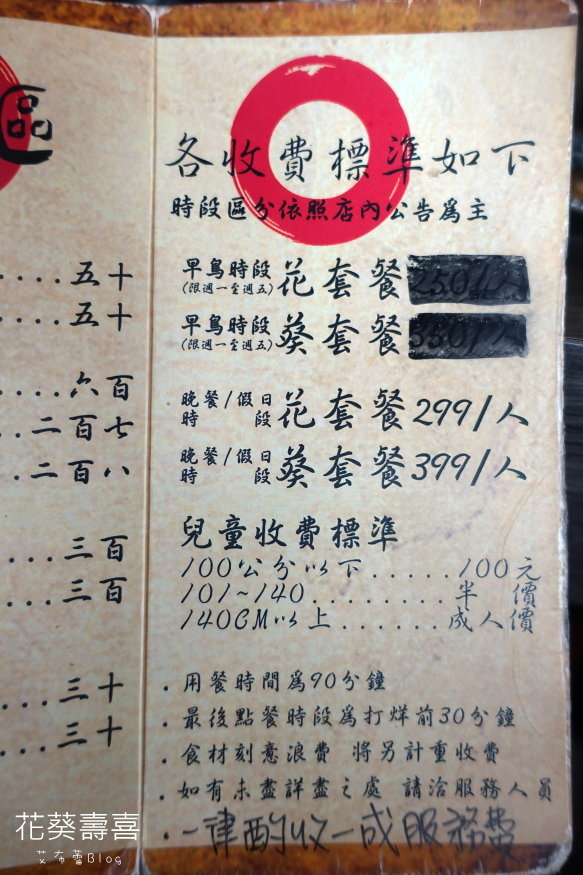 區
五十
五十
六百
二百七
二百八
三百
三百
三十
三十
各收費標準如下
時段區分依照店內公告為主
早鳥時段(限週一至週五)花套餐250/人
早鳥時段(限週一至週五)葵套餐350/人
晚餐/假日時段花套餐299/人
晚餐/假日時段葵套餐399/人
兒童收費標準
100公分以下......100元
101~140.........半價
140CM以上.......成人價
.用餐時間為90分鐘
.最後點餐時段為打烊前30分鐘
.食材刻意浪費 將另計重收費
.如有未盡詳盡之處 請洽服務人員
.一律酌收一成服務費
花葵壽喜
艾布蕾Blog